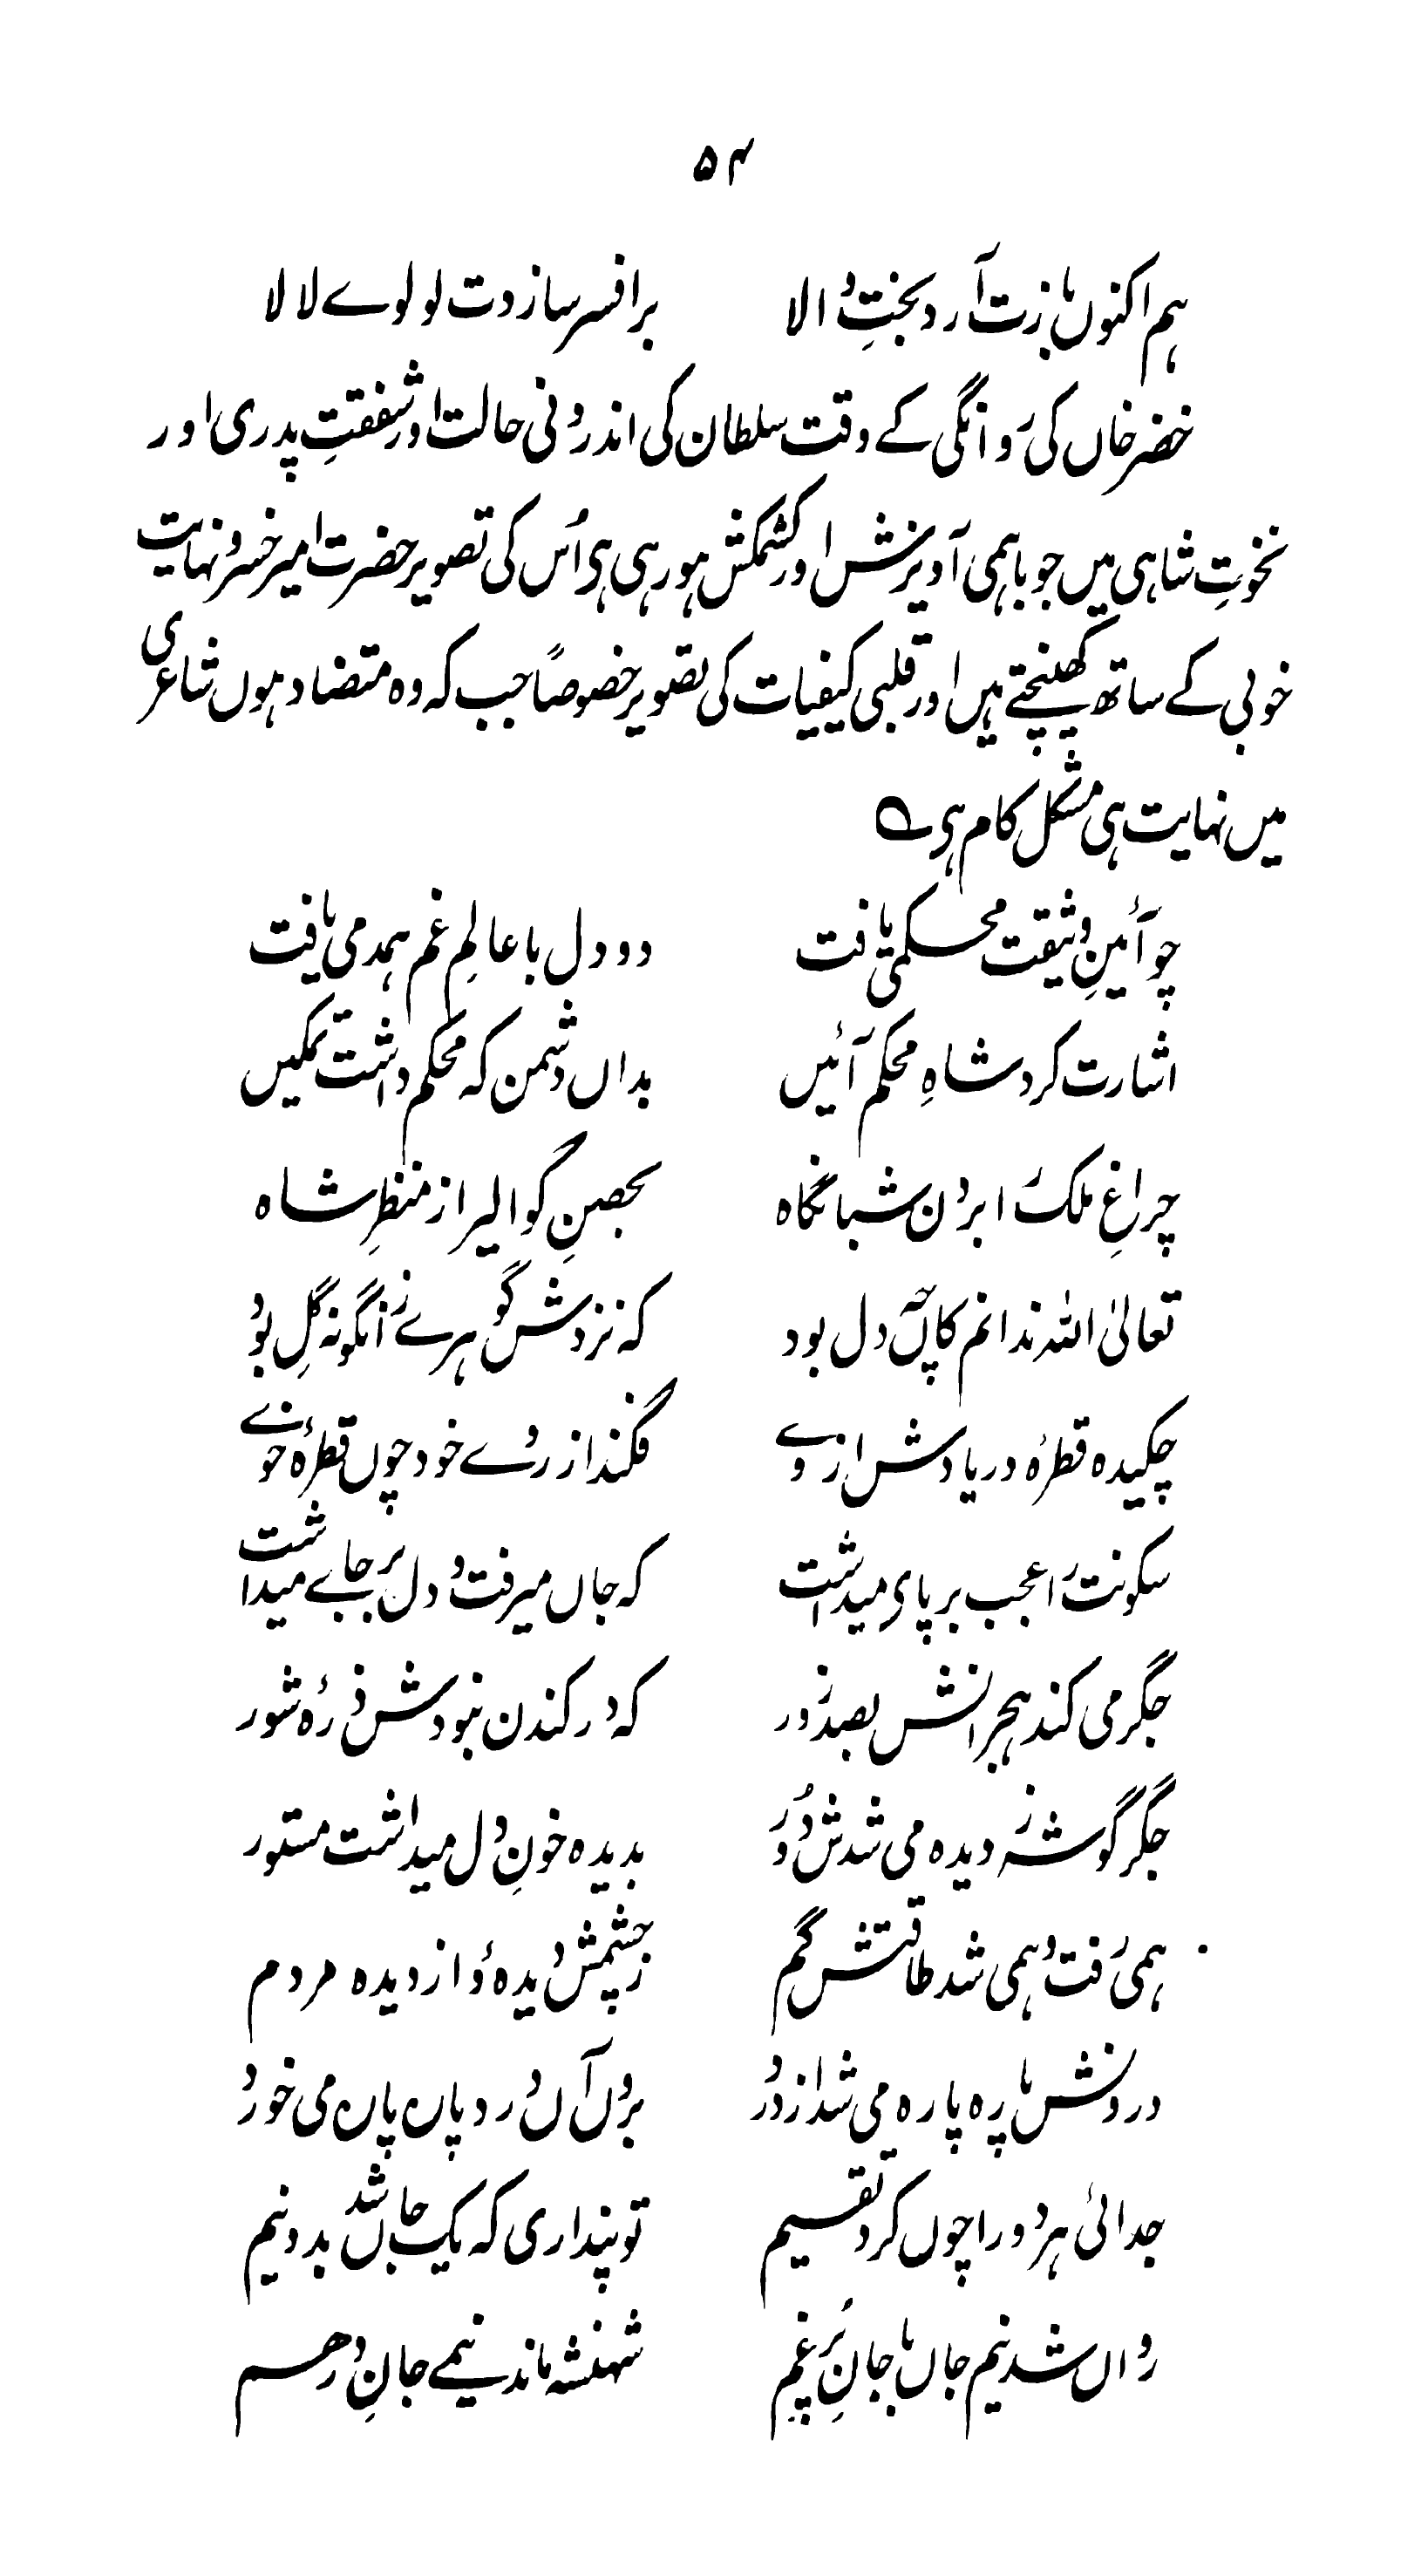 ۵۴
ہم اکنوں بازت آرد بختِ والا برافسر سازدت لولوے لالا
خضر خاں کی روانگی کے وقت سلطان کی اندرونی حالت اور شفقتِ پدری اور
نخوتِ شاہی میں جو باہمی آویزش اور کشمکش ہو رہی ہی اُس کی تصویر حضرت امیر خسرو نہایت
خوبی کے ساتھ کھینچتے ہیں اور قلبی کیفیات کی تصویر خصوصاً جب کہ وہ متضاد ہوں شاعری
میں نہایت ہی مشکل کام ہی ؎
چو آئینِ وثیقت محکمی یافت دو دل با عالمِ غم ہمدمی یافت
اشارت کرد شاہِ محکم آئیں بداں دشمن کہ محکم داشت تمکیں
چراغِ ملک را بردن شبانگاہ بحصنِ گوالیر از منظرِ شاہ
تعالیٰ اللہ ندانم کاں چہ دل بود کہ نزدش گوہرے زانگونہ گِل بود
چکیدہ قطرۂ دریادش از وے فگند از روے خود چوں قطرۂ خوے
سکونت را عجب برپای میداشت کہ جاں میرفت و دل برجاے میداشت
جگر می کند ہجرانش بصد زور کہ در کندن نبودش ذرۂ شور
جگر گوشہ ز دیدہ می شدش دور بدیدہ خونِ دل میداشت مستور
ہمی رفت و ہمی شد طاقتش گم زچشمش دیدہ و از دیدہ مردم
درونش پارہ پارہ می شد از درد بروں آں درد پنہاں پنہاں می خورد
جدائی ہر دو را چوں کرد تقسیم تو پنداری کہ یک جاں شد بدو نیم
رواں شد نیم جاں با جانِ پُر غم شہنشہ ماند نیمے جانِ درہم